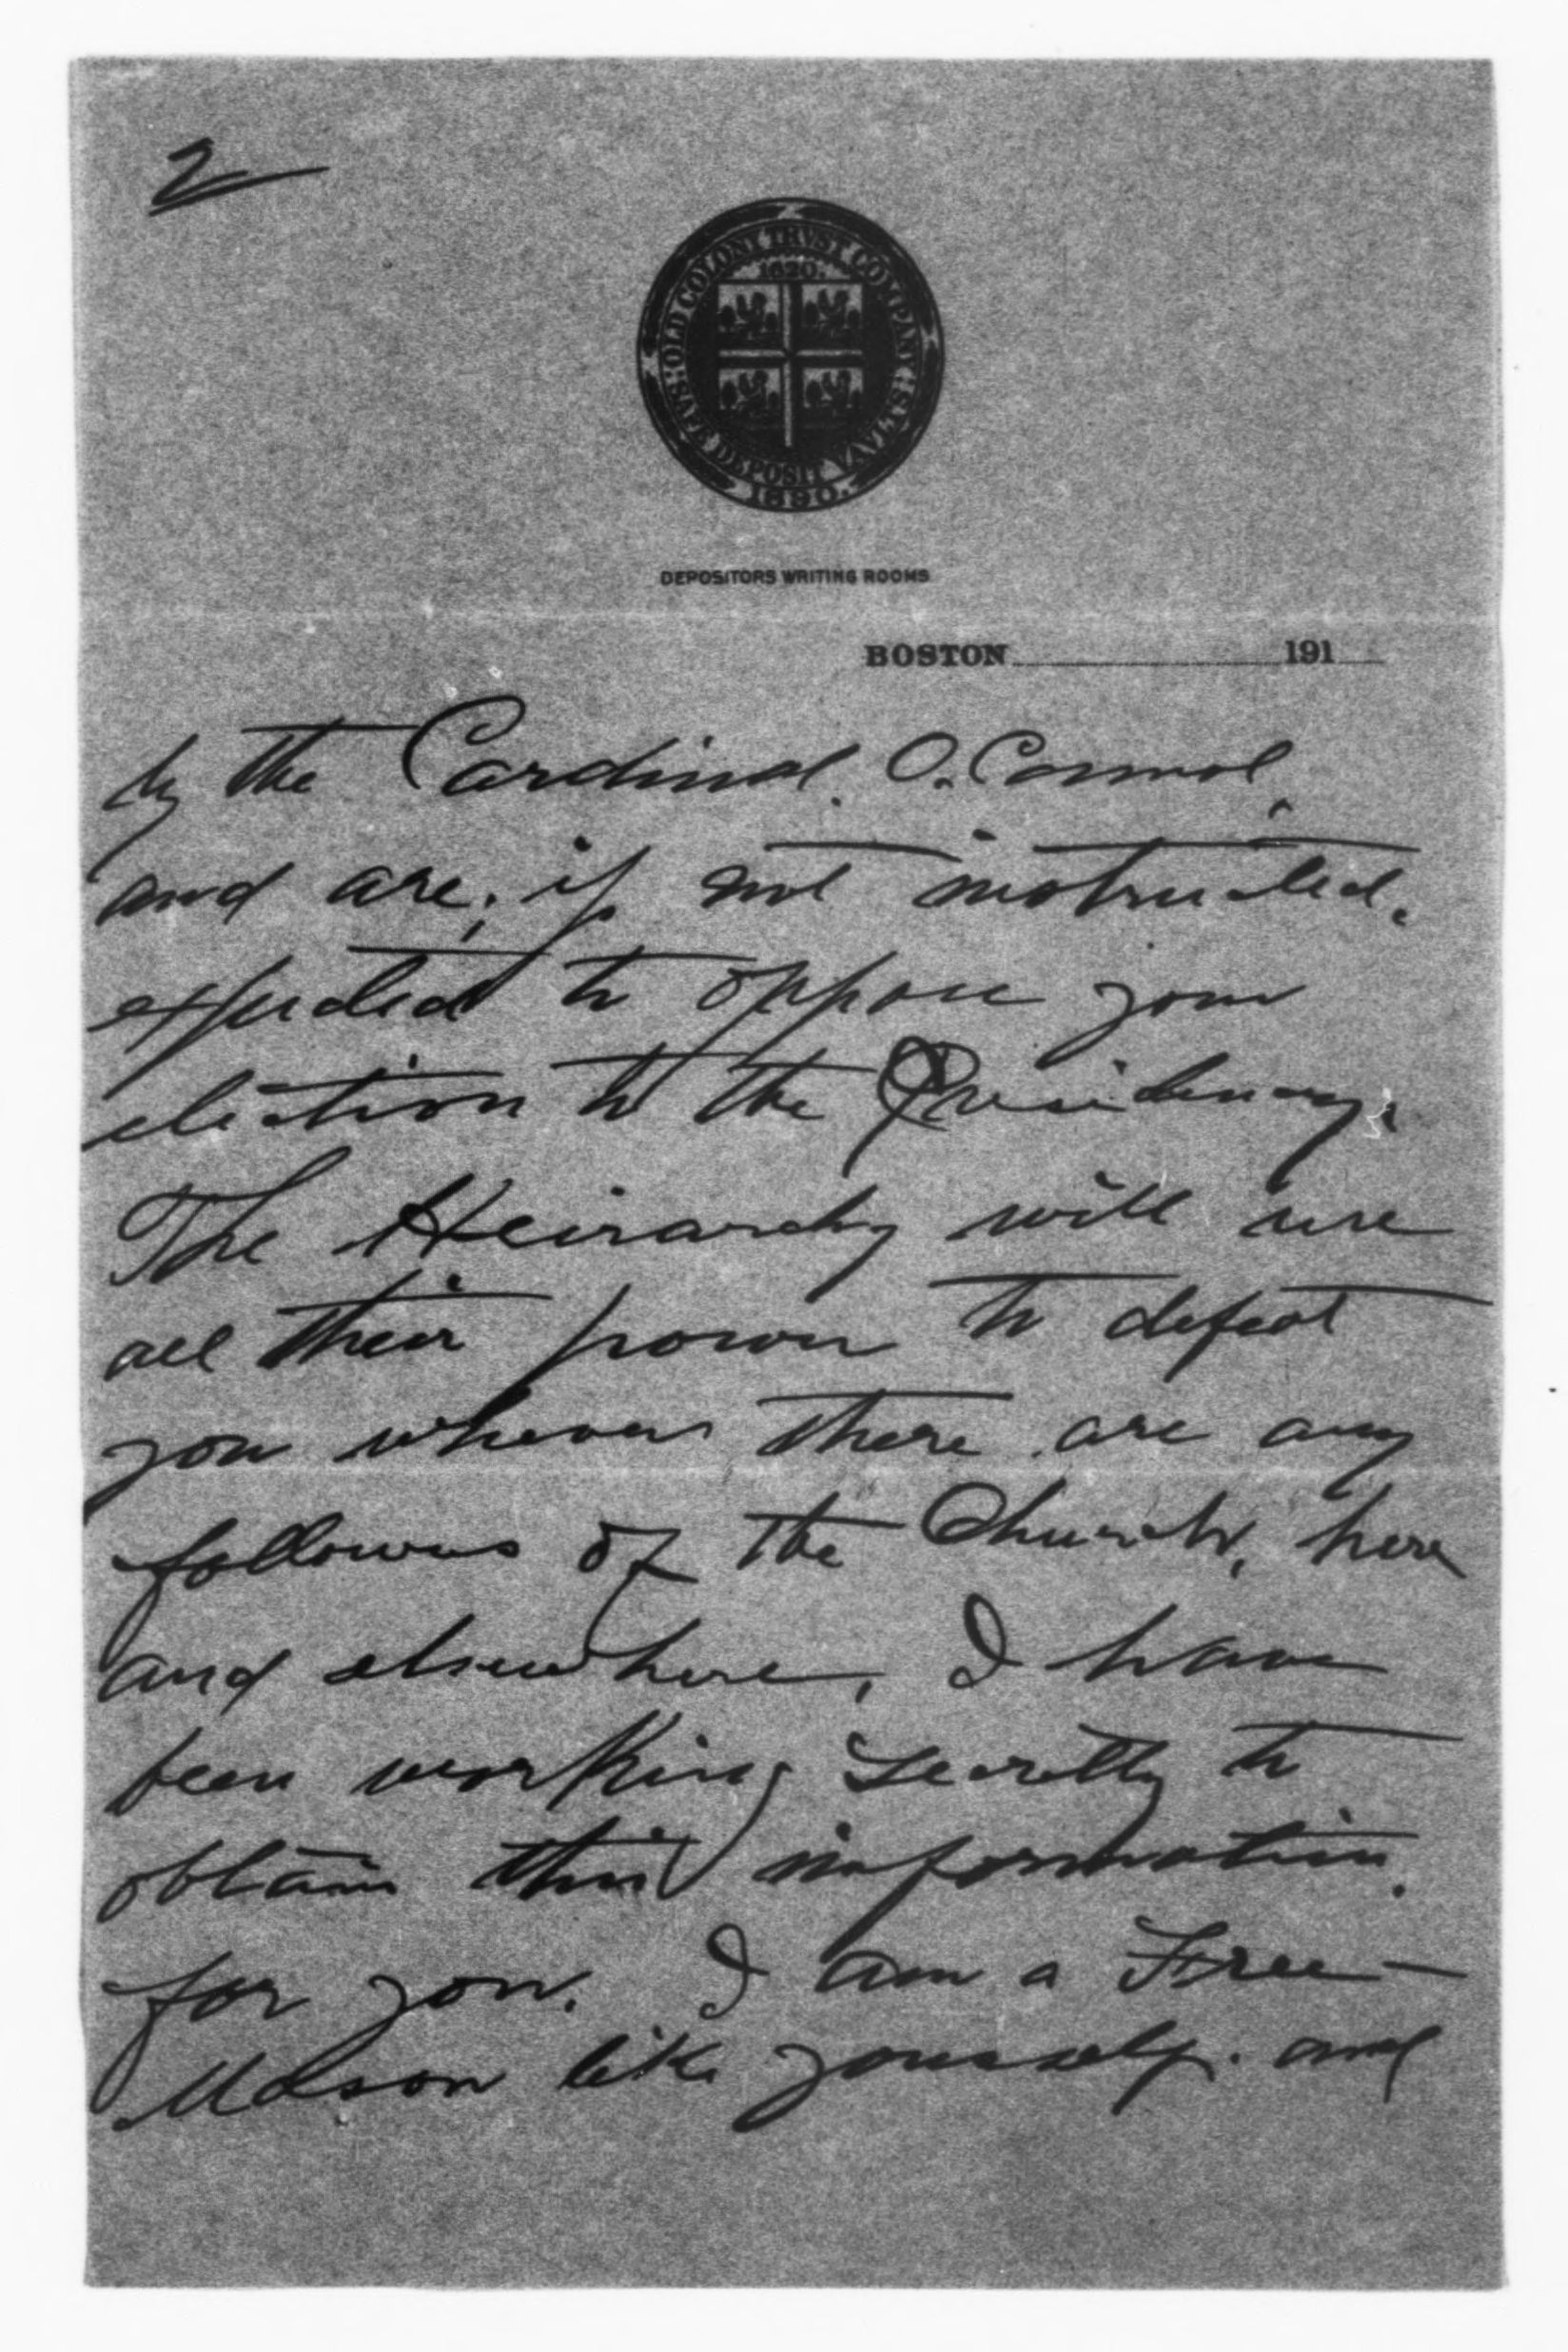 2
OLD COLONY TRVST COMPANY
1620.
SAFE DEPOSIT VAVLTS
1890.
DEPOSITORS WRITING ROOMS
BOSTON 191
by the Cardinal. O.Connol,
and are, if not instructed.
expected to oppose your
election to the Presidency.
The Heirarchy will use
all their power to defeat
you wherever there are any
followers of the Church, here
and elsewhere, I have
been working secretly to
obtain this information.
for you. I am a Free-
Mason like yourself. and